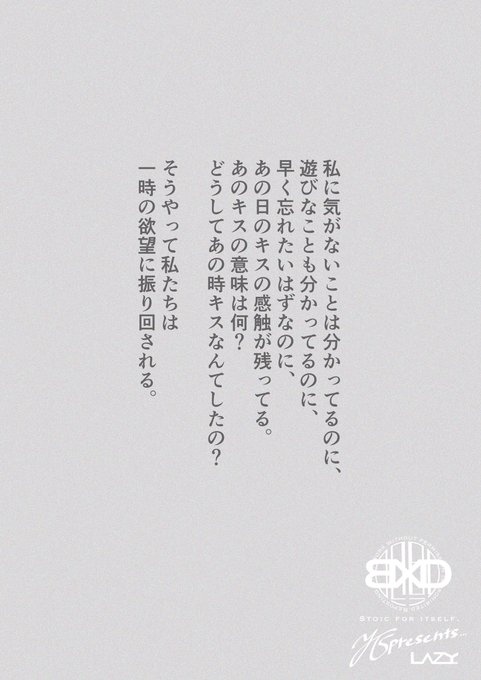 私に気がないことは分かってるのに、
遊びなことも分かってるのに、
早く忘れたいはずなのに、
あの日のキスの感触が残ってる。
あのキスの意味は何?
どうしてあの時キスなんてしたの?
そうやって私たちは
一時の欲望に振り回される。
BXD
STOIC FOR ITSELF.
YGpresents...
LAZY